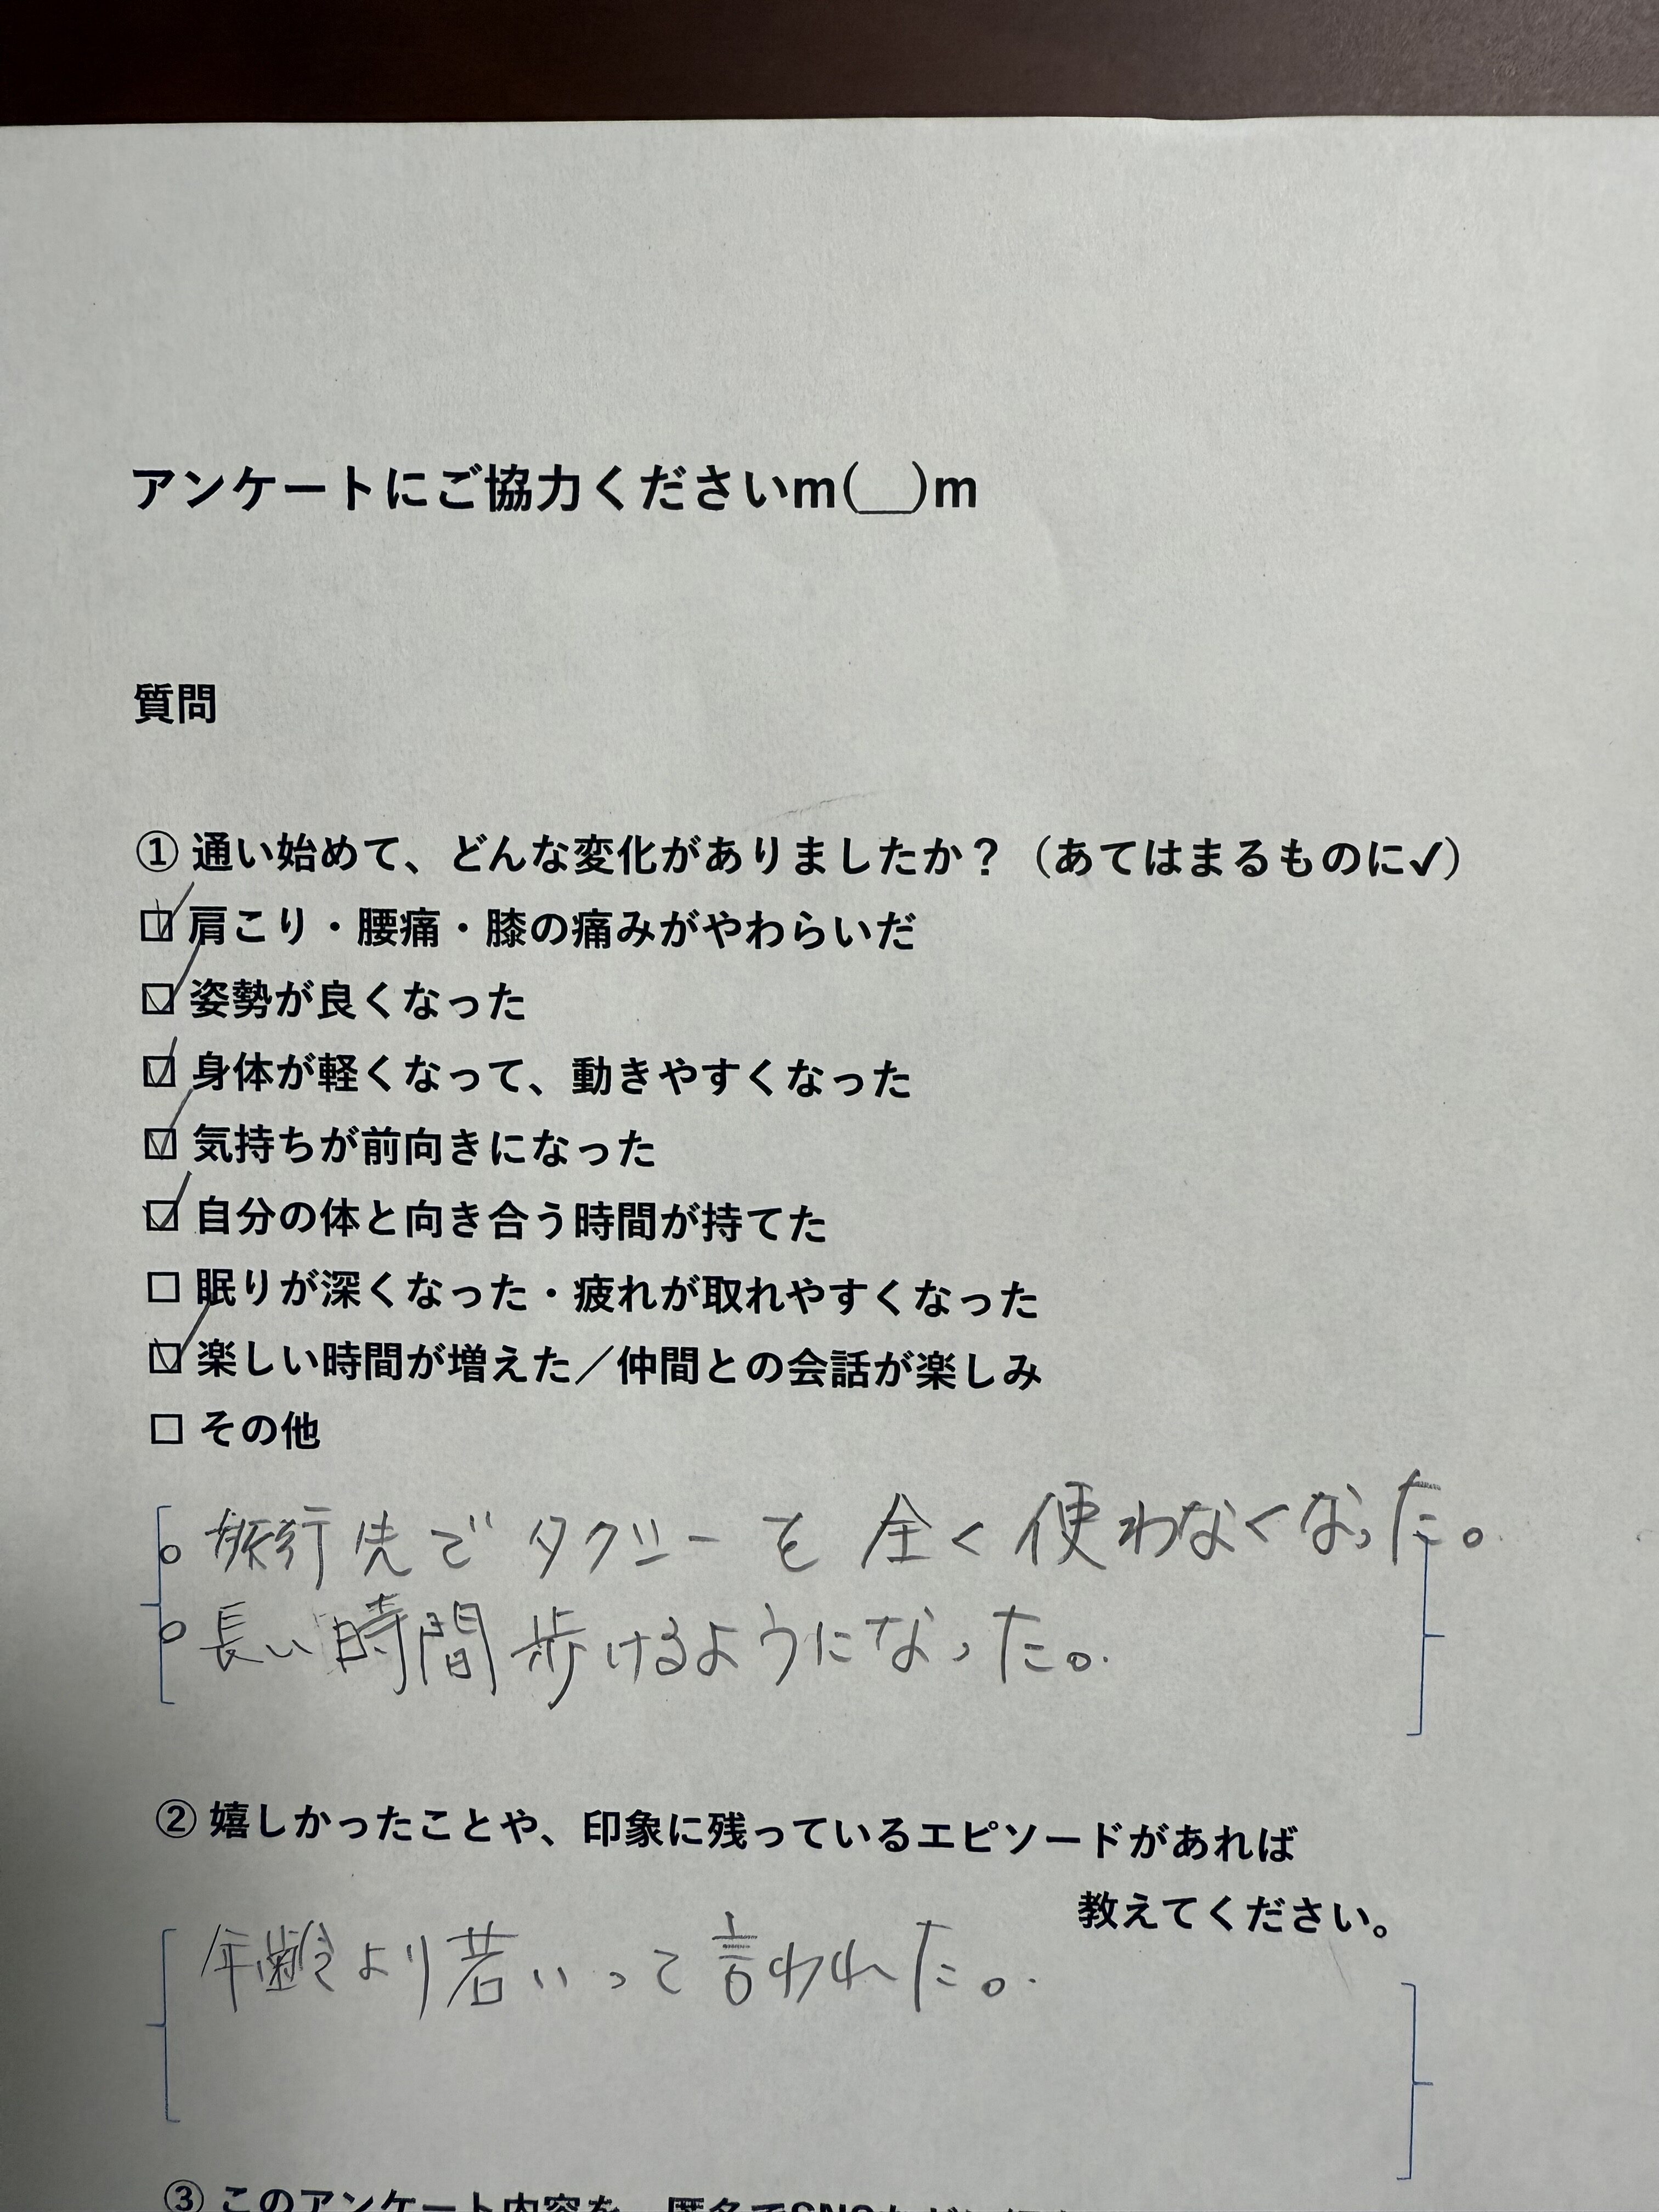 アンケートにご協力くださいm(__)m
質問
① 通い始めて、どんな変化がありましたか？（あてはまるものに✓）
☑ 肩こり・腰痛・膝の痛みがやわらいだ
☑ 姿勢が良くなった
☑ 身体が軽くなって、動きやすくなった
☑ 気持ちが前向きになった
☑ 自分の体と向き合う時間が持てた
☐ 眠りが深くなった・疲れが取れやすくなった
☑ 楽しい時間が増えた／仲間との会話が楽しみ
☐ その他
○ 旅行先でタクシーを全く使わなくなった。
○ 長い時間歩けるようになった。
② 嬉しかったことや、印象に残っているエピソードがあれば
教えてください。
年齢より若いって言われた。
③ このアンケート内容を、匿名でSNSなど